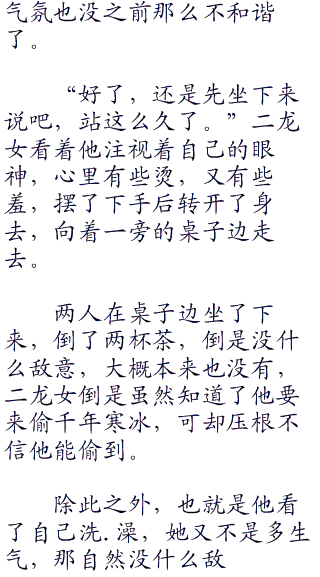 气氛也没之前那么不和谐
了。
“好了，还是先坐下来
说吧，站这么久了。”二龙
女看着他注视着自己的眼
神，心里有些烫，又有些
羞，摆了下手后转开了身
去，向着一旁的桌子边走
去。
两人在桌子边坐了下
来，倒了两杯茶，倒是没什
么敌意，大概本来也没有，
二龙女倒是虽然知道了他要
来偷千年寒冰，可却压根不
信他能偷到。
除此之外，也就是他看
了自己洗.澡，她又不是多生
气，那自然没什么敌